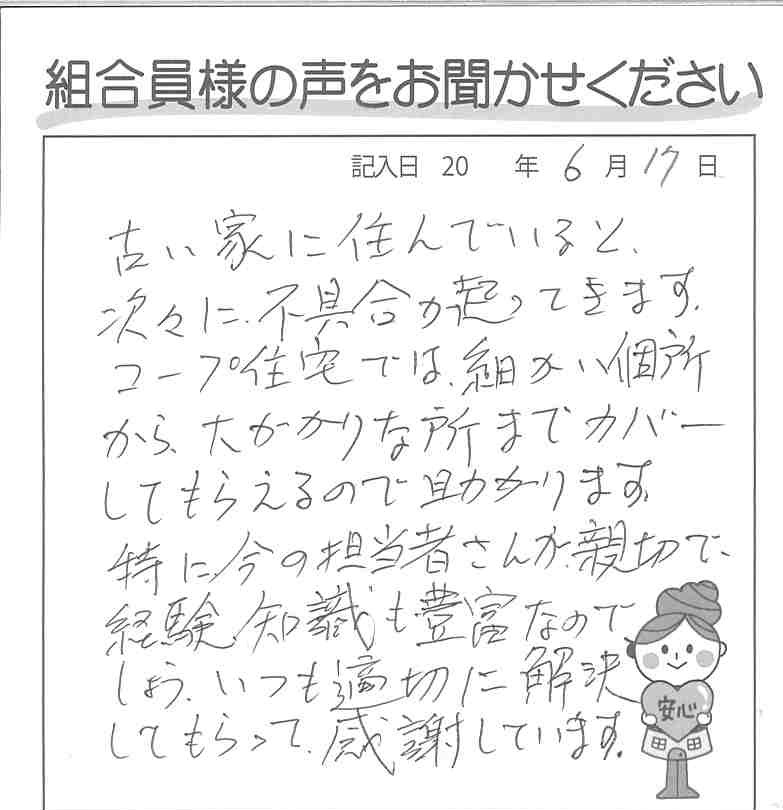 組合員様の声をお聞かせください
記入日 20 年 6 月 17 日
古い家に住んでいると、
次々に、不具合が起ってきます。
コープ住宅では、細かい個所
から、大がかりな所までカバー
してもらえるので助かります。
特に、今の担当者さんが、親切で、
経験、知識も豊富なので
しょう、いつも適切に解決
してもらって、感謝しています。
安心